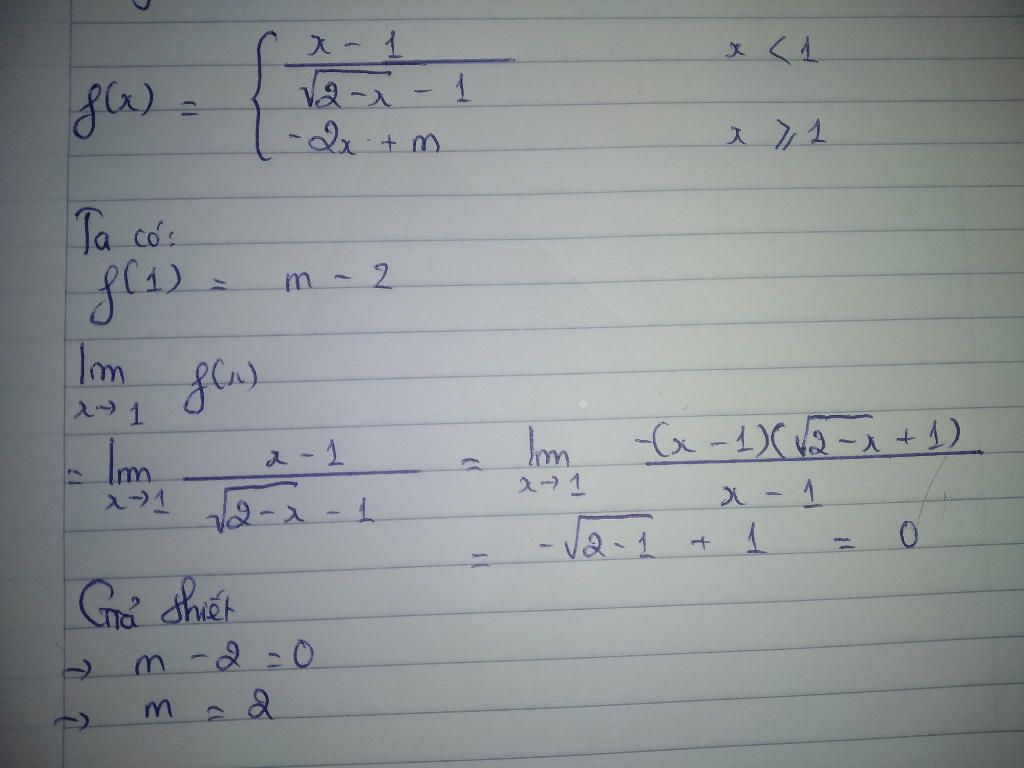 f(x) = { (x - 1)/(√(2-x) - 1) x < 1
-2x + m x ⩾ 1
Ta có:
f(1) = m - 2
lim x→1 f(x)
= lim x→1 (x - 1)/(√(2-x) - 1) = lim x→1 (-(x - 1)(√(2-x) + 1))/(x - 1)
= -√(2-1) + 1 = 0
Giả thiết
→ m - 2 = 0
→ m = 2